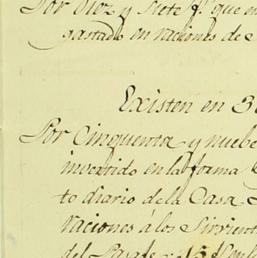 Por Diez y Siete f.s que en
gastado en raciones de
Existen en 3
Por Cinquenta y nuebe
invertido en la forma
to diario de la Casa
raciones á los Sirvient
del Parage